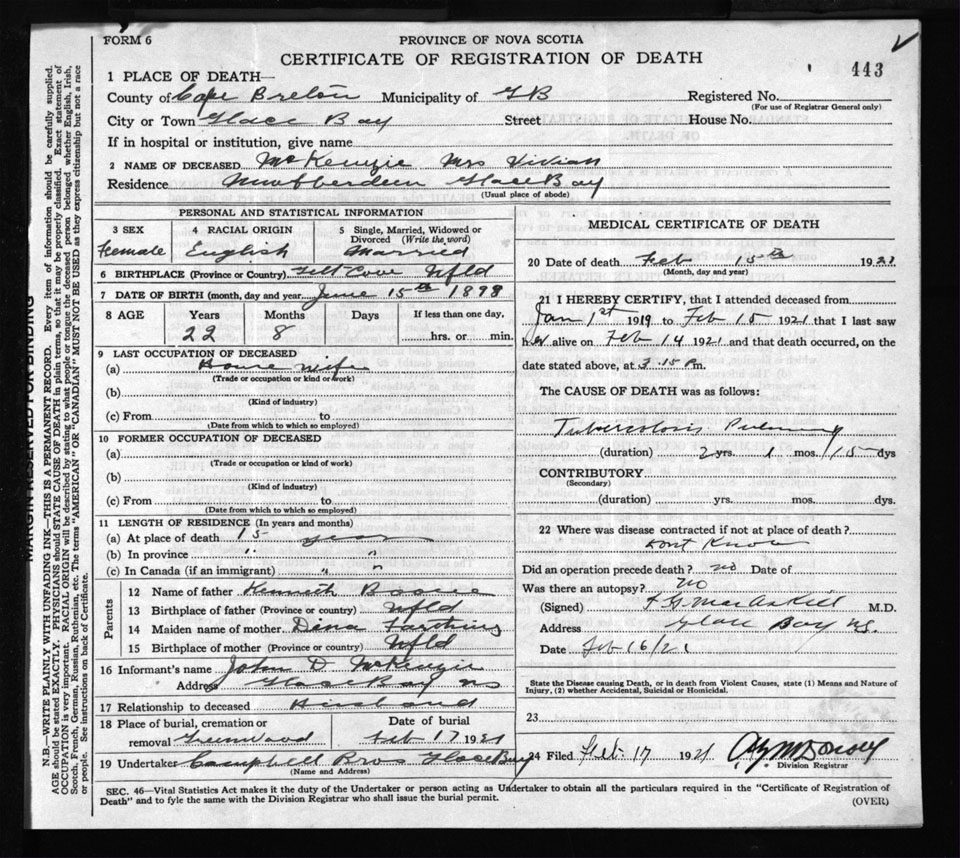 FORM 6
PROVINCE OF NOVA SCOTIA
CERTIFICATE OF REGISTRATION OF DEATH
443
1 PLACE OF DEATH—
County of Cape Breton Municipality of GB Registered No.
(For use of Registrar General only)
City or Town Glace Bay Street House No.
If in hospital or institution, give name
2 NAME OF DECEASED McKenzie Mrs Vivian
Residence New Aberdeen Glace Bay
(Usual place of abode)
PERSONAL AND STATISTICAL INFORMATION
3 SEX 4 RACIAL ORIGIN 5 Single, Married, Widowed or Divorced (Write the word)
Female English Married
6 BIRTHPLACE (Province or Country) Tilt Cove Nfld
7 DATE OF BIRTH (month, day and year) June 15th 1898
8 AGE Years Months Days If less than one day,
22 8 hrs. or min.
9 LAST OCCUPATION OF DECEASED
(a) House wife
(Trade or occupation or kind of work)
(b)
(Kind of industry)
(c) From to
(Date from which to which so employed)
10 FORMER OCCUPATION OF DECEASED
(a)
(Trade or occupation or kind of work)
(b)
(Kind of industry)
(c) From to
(Date from which to which so employed)
11 LENGTH OF RESIDENCE (In years and months)
(a) At place of death 15 years
(b) In province " "
(c) In Canada (if an immigrant) " "
Parents
12 Name of father Kenneth
13 Birthplace of father (Province or country) Nfld
14 Maiden name of mother Dina
15 Birthplace of mother (Province or country) Nfld
16 Informant's name John D McKenzie
Address Glace Bay NS
17 Relationship to deceased Husband
18 Place of burial, cremation or removal Greenwood Date of burial Feb 17 1921
19 Undertaker Campbell Bros Glace Bay
(Name and Address)
MEDICAL CERTIFICATE OF DEATH
20 Date of death Feb 15th 1921
(Month, day and year)
21 I HEREBY CERTIFY, that I attended deceased from
Jan 1st 1919 to Feb 15 1921 that I last saw
her alive on Feb 14 1921 and that death occurred, on the
date stated above, at 5.15 P.m.
The CAUSE OF DEATH was as follows:
Tuberculosis Pulmony
(duration) 2 yrs. 1 mos. 15 dys
CONTRIBUTORY
(Secondary)
(duration) yrs. mos. dys.
22 Where was disease contracted if not at place of death?
Dont Know
Did an operation precede death? no Date of
Was there an autopsy? No
(Signed) MacAskill M.D.
Address Glace Bay NS.
Date Feb 16/21
State the Disease causing Death, or in death from Violent Causes, state (1) Means and Nature of
Injury, (2) whether Accidental, Suicidal or Homicidal.
23
24 Filed Feb 17 1921
Division Registrar
SEC. 46—Vital Statistics Act makes it the duty of the Undertaker or person acting as Undertaker to obtain all the particulars required in the "Certificate of Registration of
Death" and to fyle the same with the Division Registrar who shall issue the burial permit.
(OVER)
MARGIN RESERVED FOR BINDING
N.B.—WRITE PLAINLY WITH UNFADING INK—THIS IS A PERMANENT RECORD. Every item of information should be carefully supplied.
AGE should be stated EXACTLY. PHYSICIANS should STATE CAUSE OF DEATH in plain terms, so that it may be properly classified. Exact statement of
OCCUPATION is very important. RACIAL ORIGIN will be described by stating to what people or tongue the deceased person belonged whether English, Irish,
Scotch, French, German, Russian, Ruthenian, etc. The terms "AMERICAN" OR "CANADIAN" MUST NOT BE USED as they express citizenship but not a race
or people. See instructions on back of Certificate.